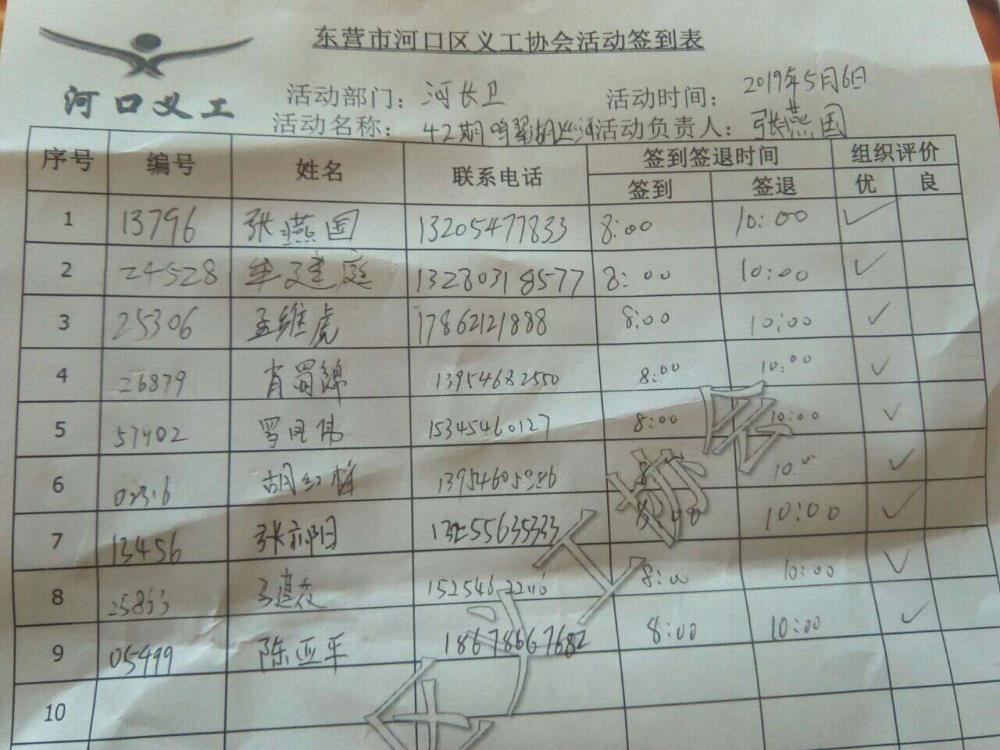 东营市河口区义工协会活动签到表
河口义工
活动部门: 河长卫 活动时间: 2019年5月6日
活动名称: 42期鸣翠湖 活动负责人: 张燕国
序号 编号 姓名 联系电话 签到签退时间 组织评价
签到 签退 优 良
1 13796 张燕国 13205477833 8:00 10:00 ✓
2 24528 牟建庭 13280318577 8:00 10:00 ✓
3 25306 孟维虎 17862121888 8:00 10:00 ✓
4 26879 肖蜀锦 13954682550 8:00 10:00 ✓
5 57402 罗凤伟 15345460127 8:00 10:00 ✓
6 胡红梅 ✓
7 13456 8:00 10:00 ✓
8 8:00 10:00 ✓
9 05499 陈亚平 18678667682 8:00 10:00 ✓
10